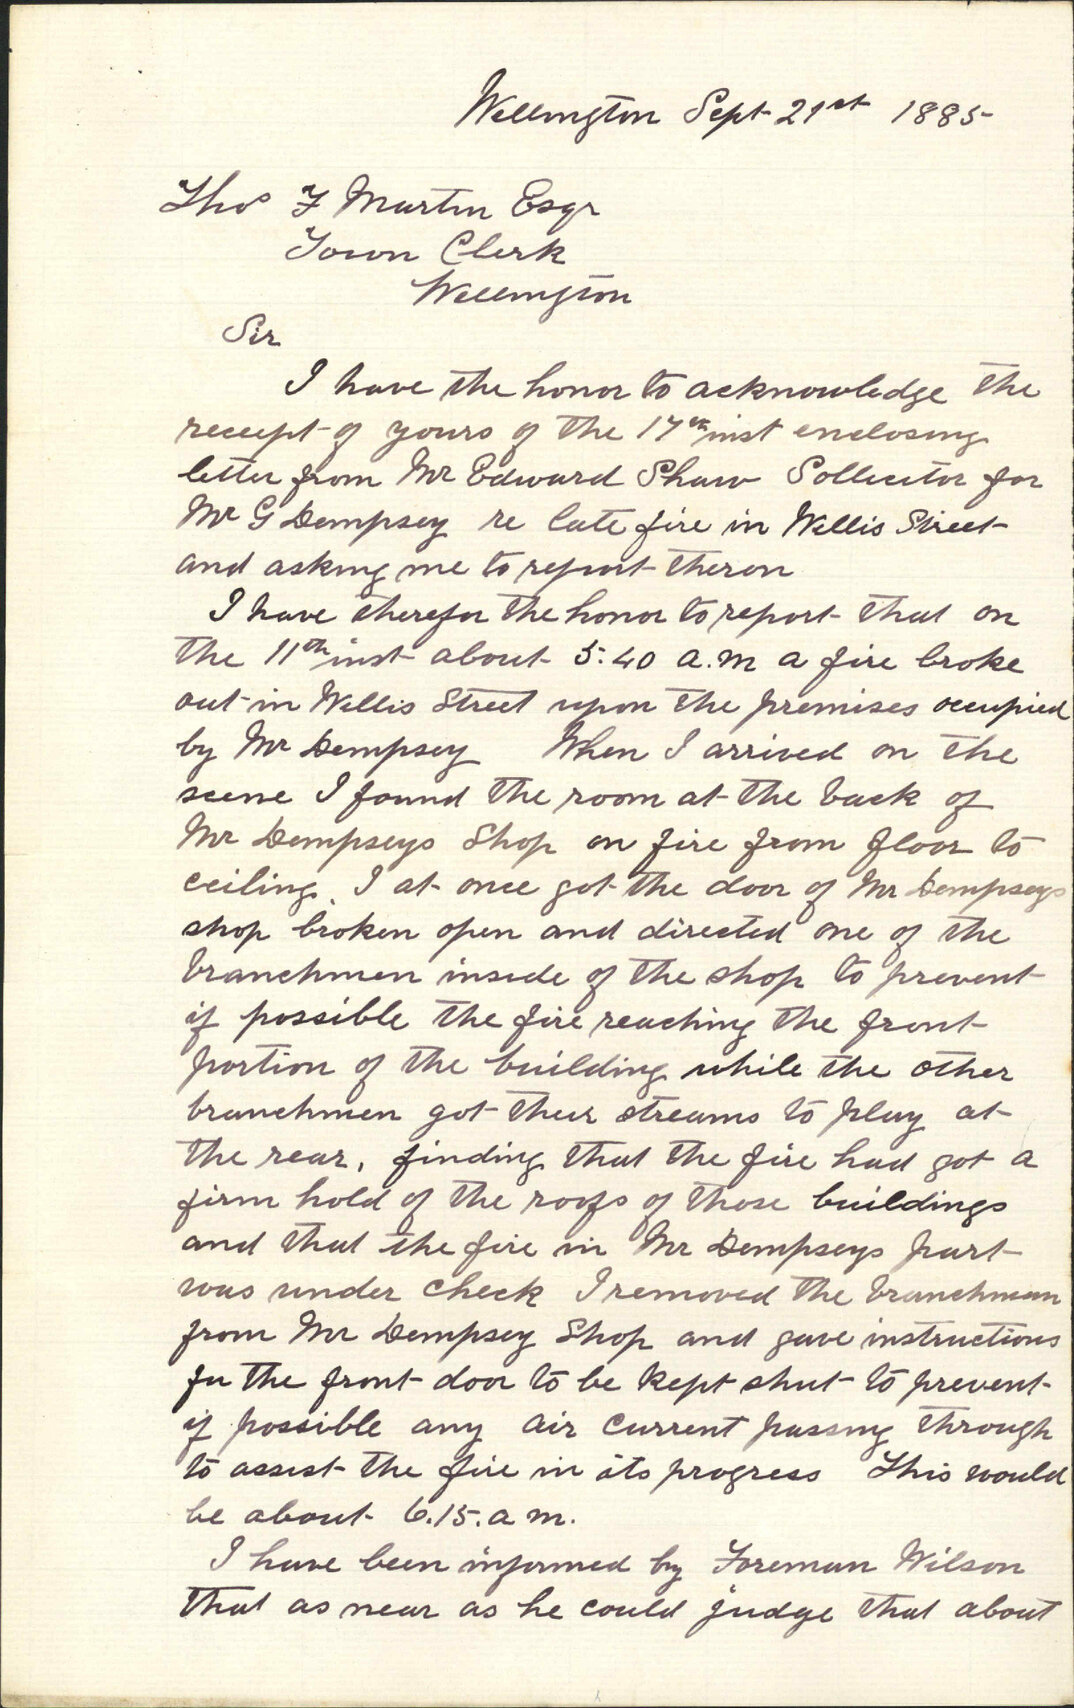 Wellington Sept 21st 1885
Thos F Martin Esqr
Town Clerk
Wellington
Sir
I have the honor to acknowledge the
receipt of yours of the 17th inst enclosing
letter from Mr Edward Shaw Sollicitor for
Mr G Dempsey re late fire in Willis Street
and asking me to report theron
I have therefor the honor to report that on
the 11th inst about 5:40 a.m a fire broke
out in Willis Street upon the premises occupied
by Mr Dempsey When I arrived on the
scene I found the room at the back of
Mr Dempseys Shop on fire from floor to
ceiling. I at once got the door of Mr Dempseys
shop broken open and directed one of the
branchmen inside of the shop to prevent
if possible the fire reaching the front
portion of the building while the other
branchmen got their streams to play at
the rear, finding that the fire had got a
firm hold of the roofs of those buildings
and that the fire in Mr Dempseys part
was under check I removed the branchman
from Mr Dempsey Shop and gave instructions
for the front door to be kept shut to prevent
if possible any air current passing through
to assist the fire in its progress This would
be about 6.15. a m.
I have been informed by Foreman Wilson
that as near as he could judge that about